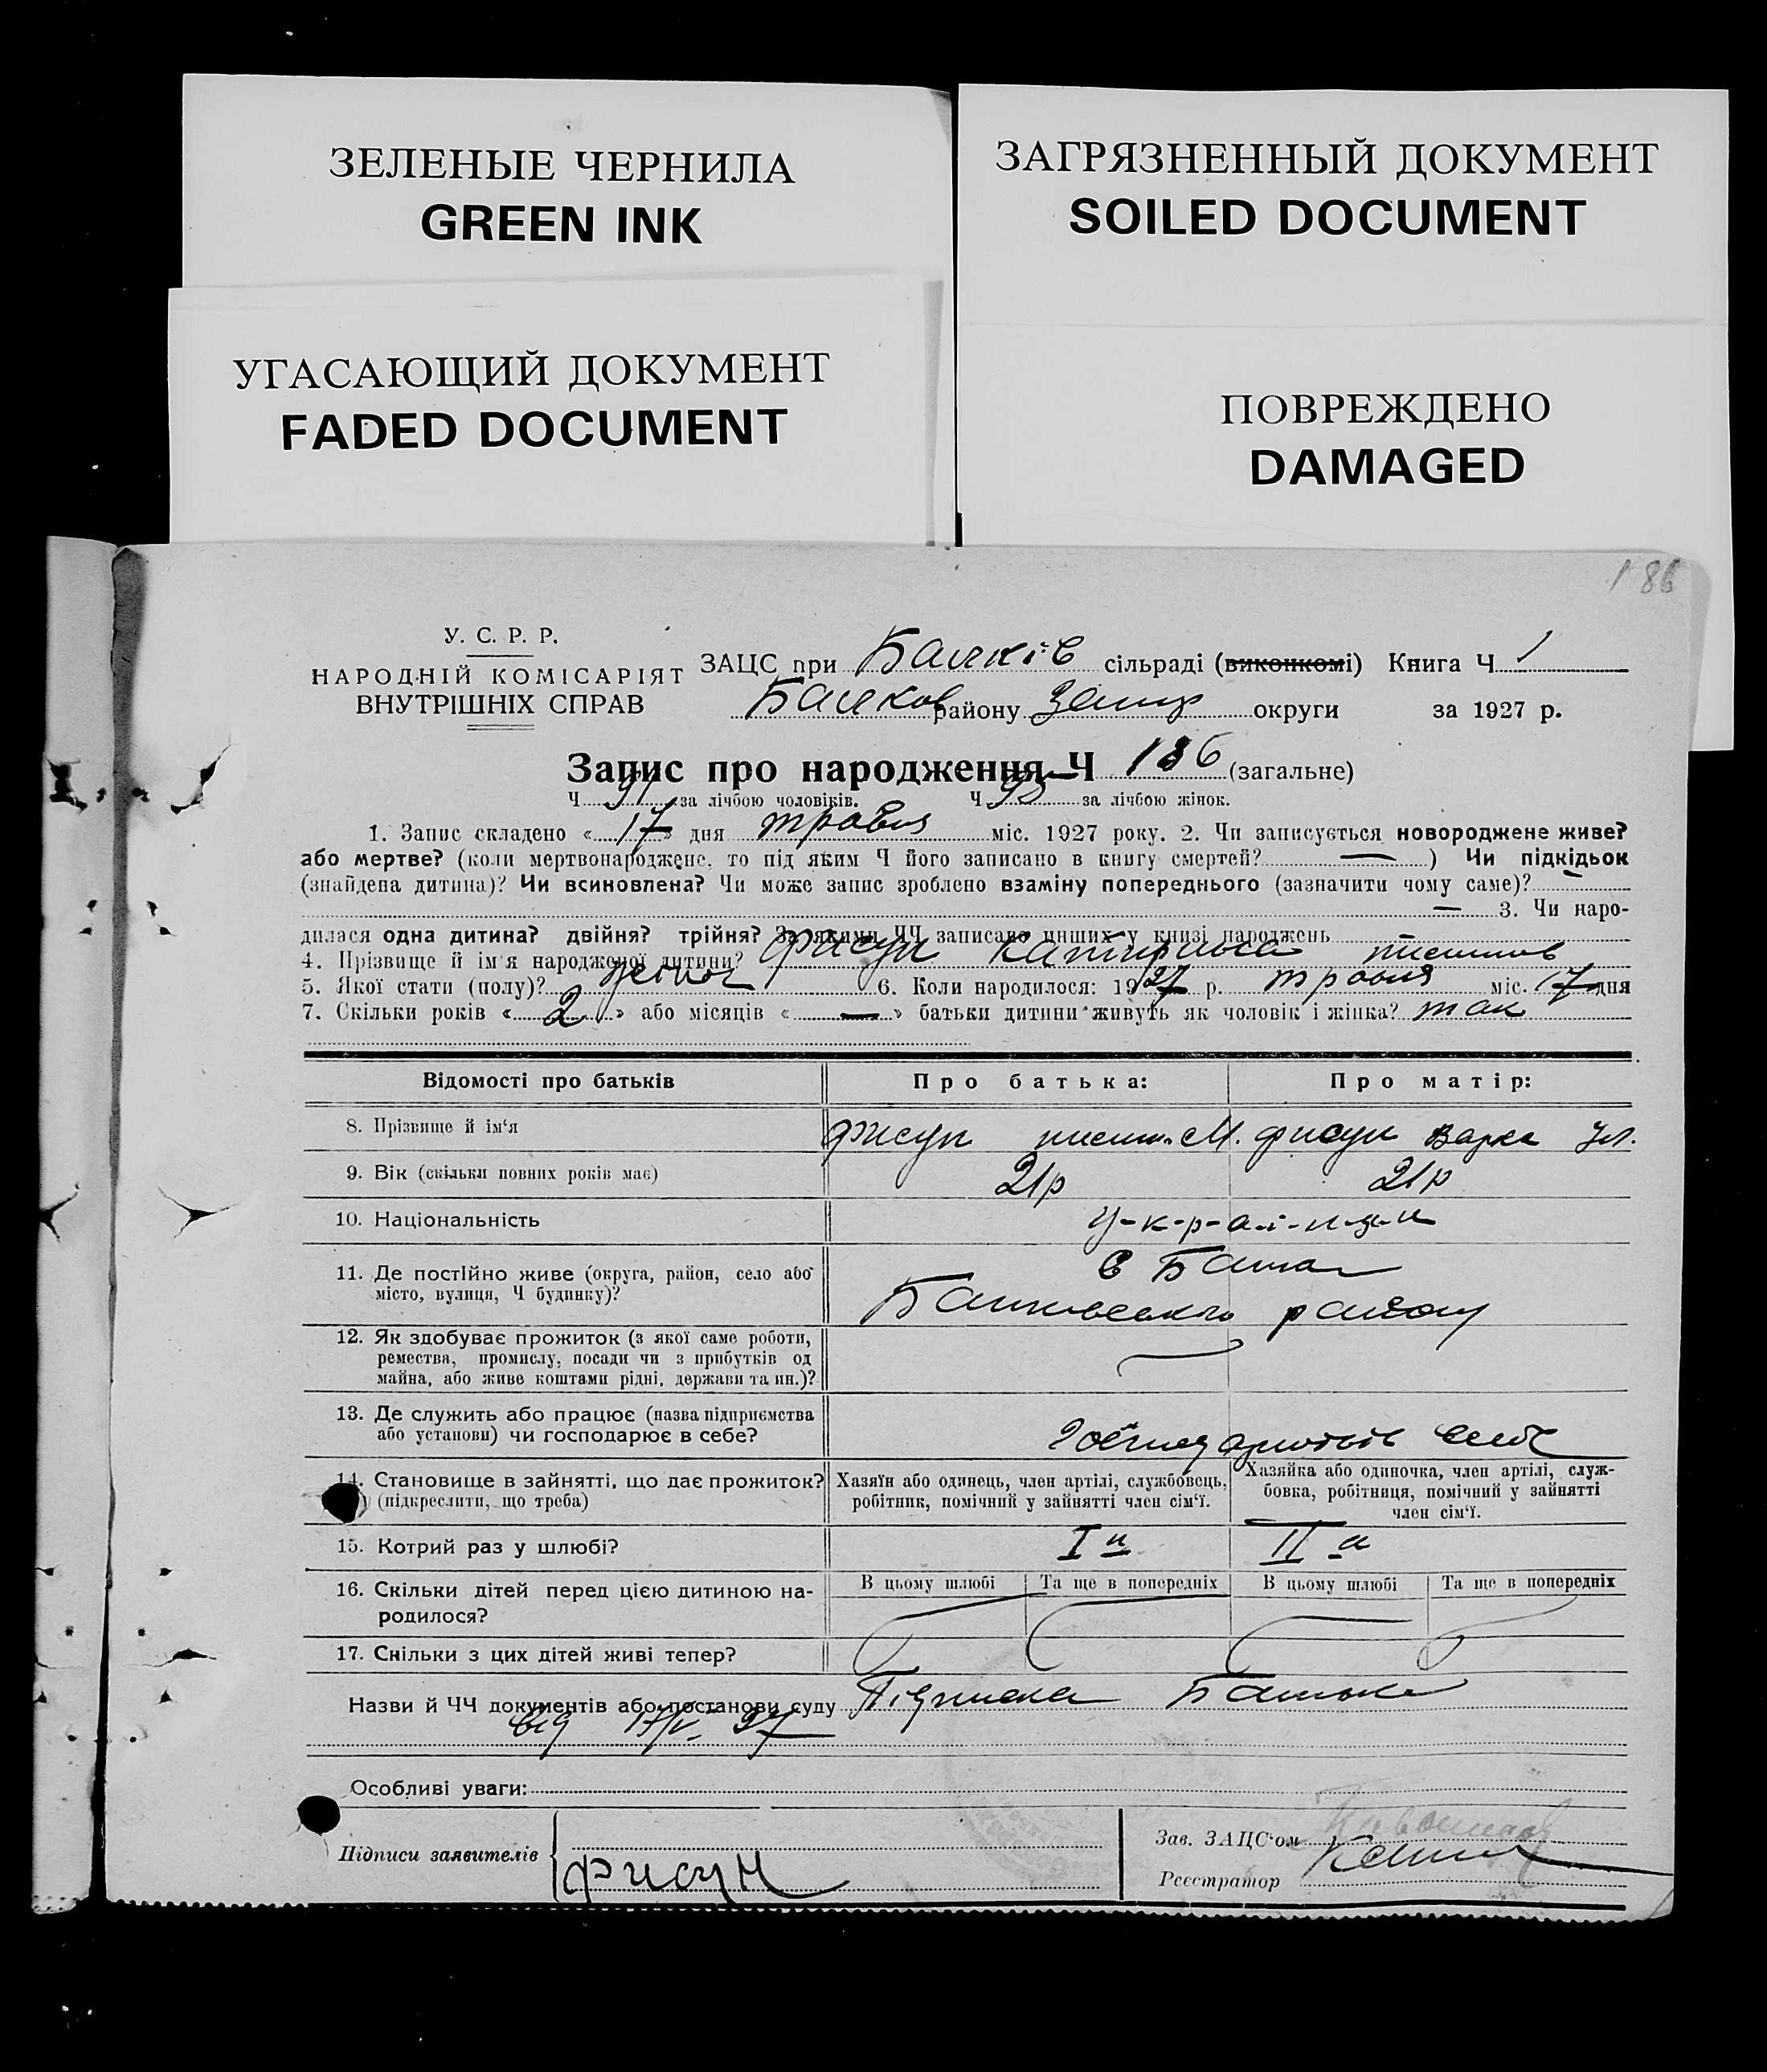 ЗЕЛЕНЫЕ ЧЕРНИЛА
GREEN INK
ЗАГРЯЗНЕННЫЙ ДОКУМЕНТ
SOILED DOCUMENT
УГАСАЮЩИЙ ДОКУМЕНТ
FADED DOCUMENT
ПОВРЕЖДЕНО
DAMAGED
186
У. С. Р. Р.
НАРОДНІЙ КОМІСАРІЯТ
ВНУТРІШНІХ СПРАВ
ЗАЦС при Балків сільраді (виконкомі) Книга Ч 1
Балков району Запор округи за 1927 р.
Запис про народження Ч 186 (загальне)
Ч 91 за лічбою чоловіків. Ч 95 за лічбою жінок.
1. Запис складено « 17 » дня травня міс. 1927 року. 2. Чи записується новороджене живе?
або мертве? (коли мертвонароджене, то під яким Ч його записано в книгу смертей? — ) Чи підкідьок
(знайдена дитина)? Чи всиновлена? Чи може запис зроблено взаміну попереднього (зазначити чому саме)? —
— 3. Чи наро-
дилася одна дитина? двійня? трійня? За якими ЧЧ записано инших у книзі народжень
4. Прізвище й ім'я народженої дитини? Фисун Катирина
5. Якої стати (полу)? жіноч 6. Коли народилося: 1927 р. травня міс. 17 дня
7. Скільки років « 2 » або місяців « — » батьки дитини живуть як чоловік і жінка? так
Відомості про батьків
Про батька:
Про матір:
8. Прізвище й ім'я
Фисун М. Фисун Варка Ул.
9. Вік (скільки повних років має)
21р 21р
10. Національність
У-к-р-а-ї-н-ци
11. Де постійно живе (округа, район, село або
місто, вулиця, Ч будинку)?
С Балка
Балковського району
12. Як здобуває прожиток (з якої саме роботи,
ремества, промислу, посади чи з прибутків од
майна, або живе коштами рідні, держави та ин.)?
13. Де служить або працює (назва підприємства
або установи) чи господарює в себе?
14. Становище в зайнятті, що дає прожиток?
(підкреслити, що треба)
Хазяїн або одинець, член артілі, службовець,
робітник, помічний у зайнятті член сім'ї.
Хазяйка або одиночка, член артілі, служ-
бовка, робітниця, помічний у зайнятті
член сім'ї.
15. Котрий раз у шлюбі?
I й II а
16. Скільки дітей перед цією дитиною на-
родилося?
В цьому шлюбі Та ще в попередніх В цьому шлюбі Та ще в попередніх
17. Скільки з цих дітей живі тепер?
Назви й ЧЧ документів або постанови суду Підписка Батька
від 17/V 27
Особливі уваги:
Підписи заявителів
Фисун
Зав. ЗАЦС'ом
Реєстратор